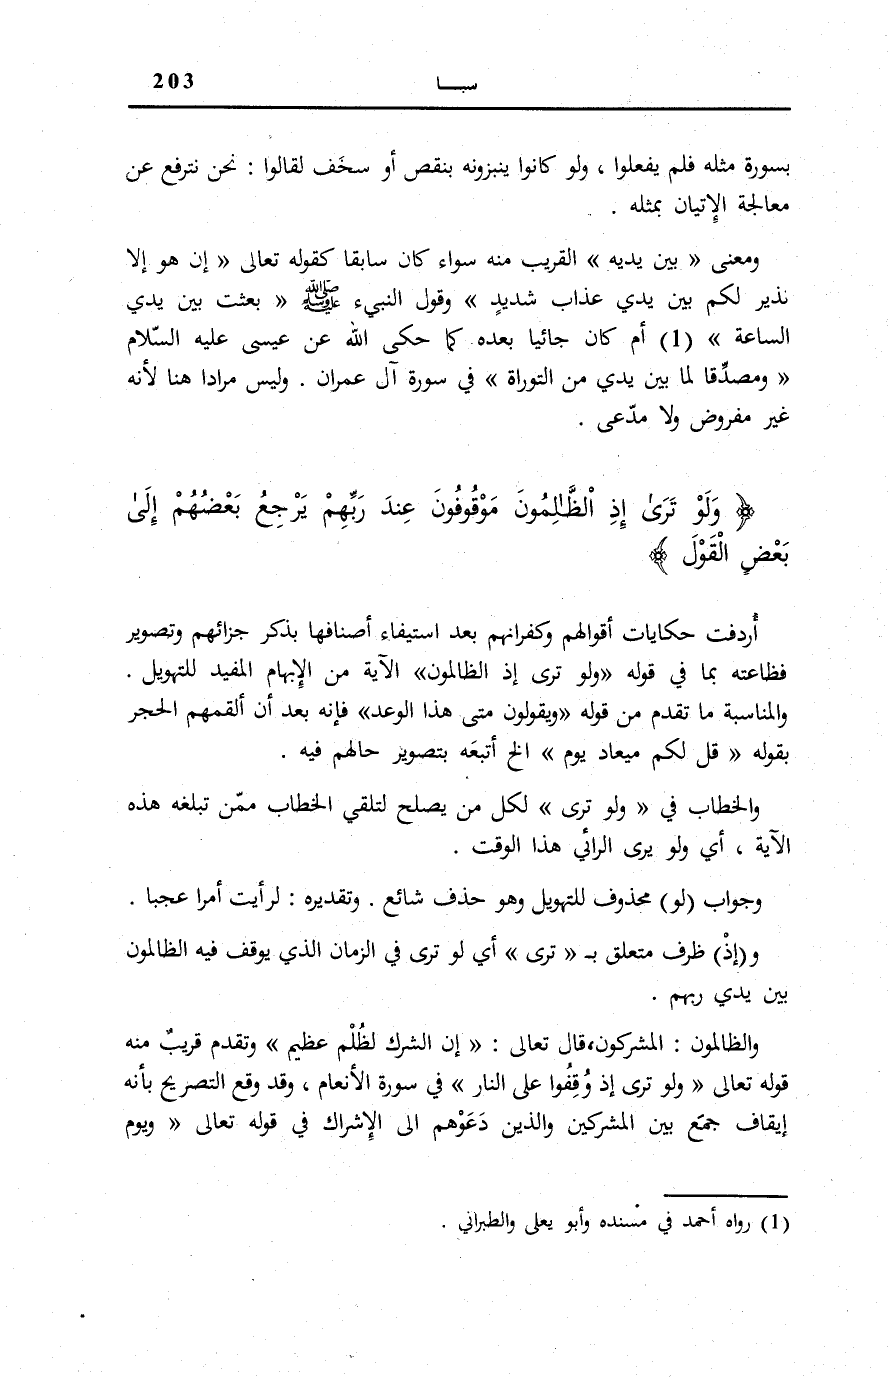 203
سبــا
بسورة مثله فلم يفعلوا ، ولو كانوا ينبزونه بنقص أو سخَف لقالوا : نحن نترفع عن
معالجة الإتيان بمثله .
ومعنى « بين يديه » القريب منه سواء كان سابقا كقوله تعالى « إن هو إلا
نذير لكم بين يدي عذاب شديدٍ » وقول النبيء ﷺ « بعثت بين يدي
الساعة » (1) أم كان جائيا بعده كما حكى الله عن عيسى عليه السّلام
« ومصدِّقا لما بين يدي من التوراة » في سورة آل عمران . وليس مرادا هنا لأنه
غير مفروض ولا مدّعى .
﴿ وَلَوْ تَرَىٰ إِذِ اْلظَّـٰلِمُونَ مَوْقُوفُونَ عِندَ رَبِّهِمْ يَرْجِعُ بَعْضُهُمْ إِلَىٰ
بَعْضٍ الْقَوْلَ ﴾
أُردفت حكايات أقوالهم وكفرانهم بعد استيفاء أصنافها بذكر جزائهم وتصوير
فظاعته بما في قوله «ولو ترى إذ الظالمون» الآية من الإبهام المفيد للتهويل .
والمناسبة ما تقدم من قوله «ويقولون متى هذا الوعد» فإنه بعد أن ألقمهم الحجر
بقوله « قل لكم ميعاد يوم » الخ أتبعَه بتصوير حالهم فيه .
والخطاب في « ولو ترى » لكل من يصلح لتلقي الخطاب ممّن تبلغه هذه
الآية ، أي ولو يرى الرائي هذا الوقت .
وجواب (لو) محذوف للتهويل وهو حذف شائع . وتقديره : لرأيت أمرا عجبا .
و(إذْ) ظرف متعلق بـ « ترى » أي لو ترى في الزمان الذي يوقف فيه الظالمون
بين يدي ربهم .
والظالمون : المشركون،قال تعالى : « إن الشرك لظُلْم عظيم » وتقدم قريبٌ منه
قوله تعالى « ولو ترى إذ وُقِفُوا على النار » في سورة الأنعام ، وقد وقع التصريح بأنه
إيقاف جمْع بين المشركين والذين دَعَوْهم الى الإشراك في قوله تعالى « ويوم
(1) رواه أحمد في مسنده وأبو يعلى والطبراني .